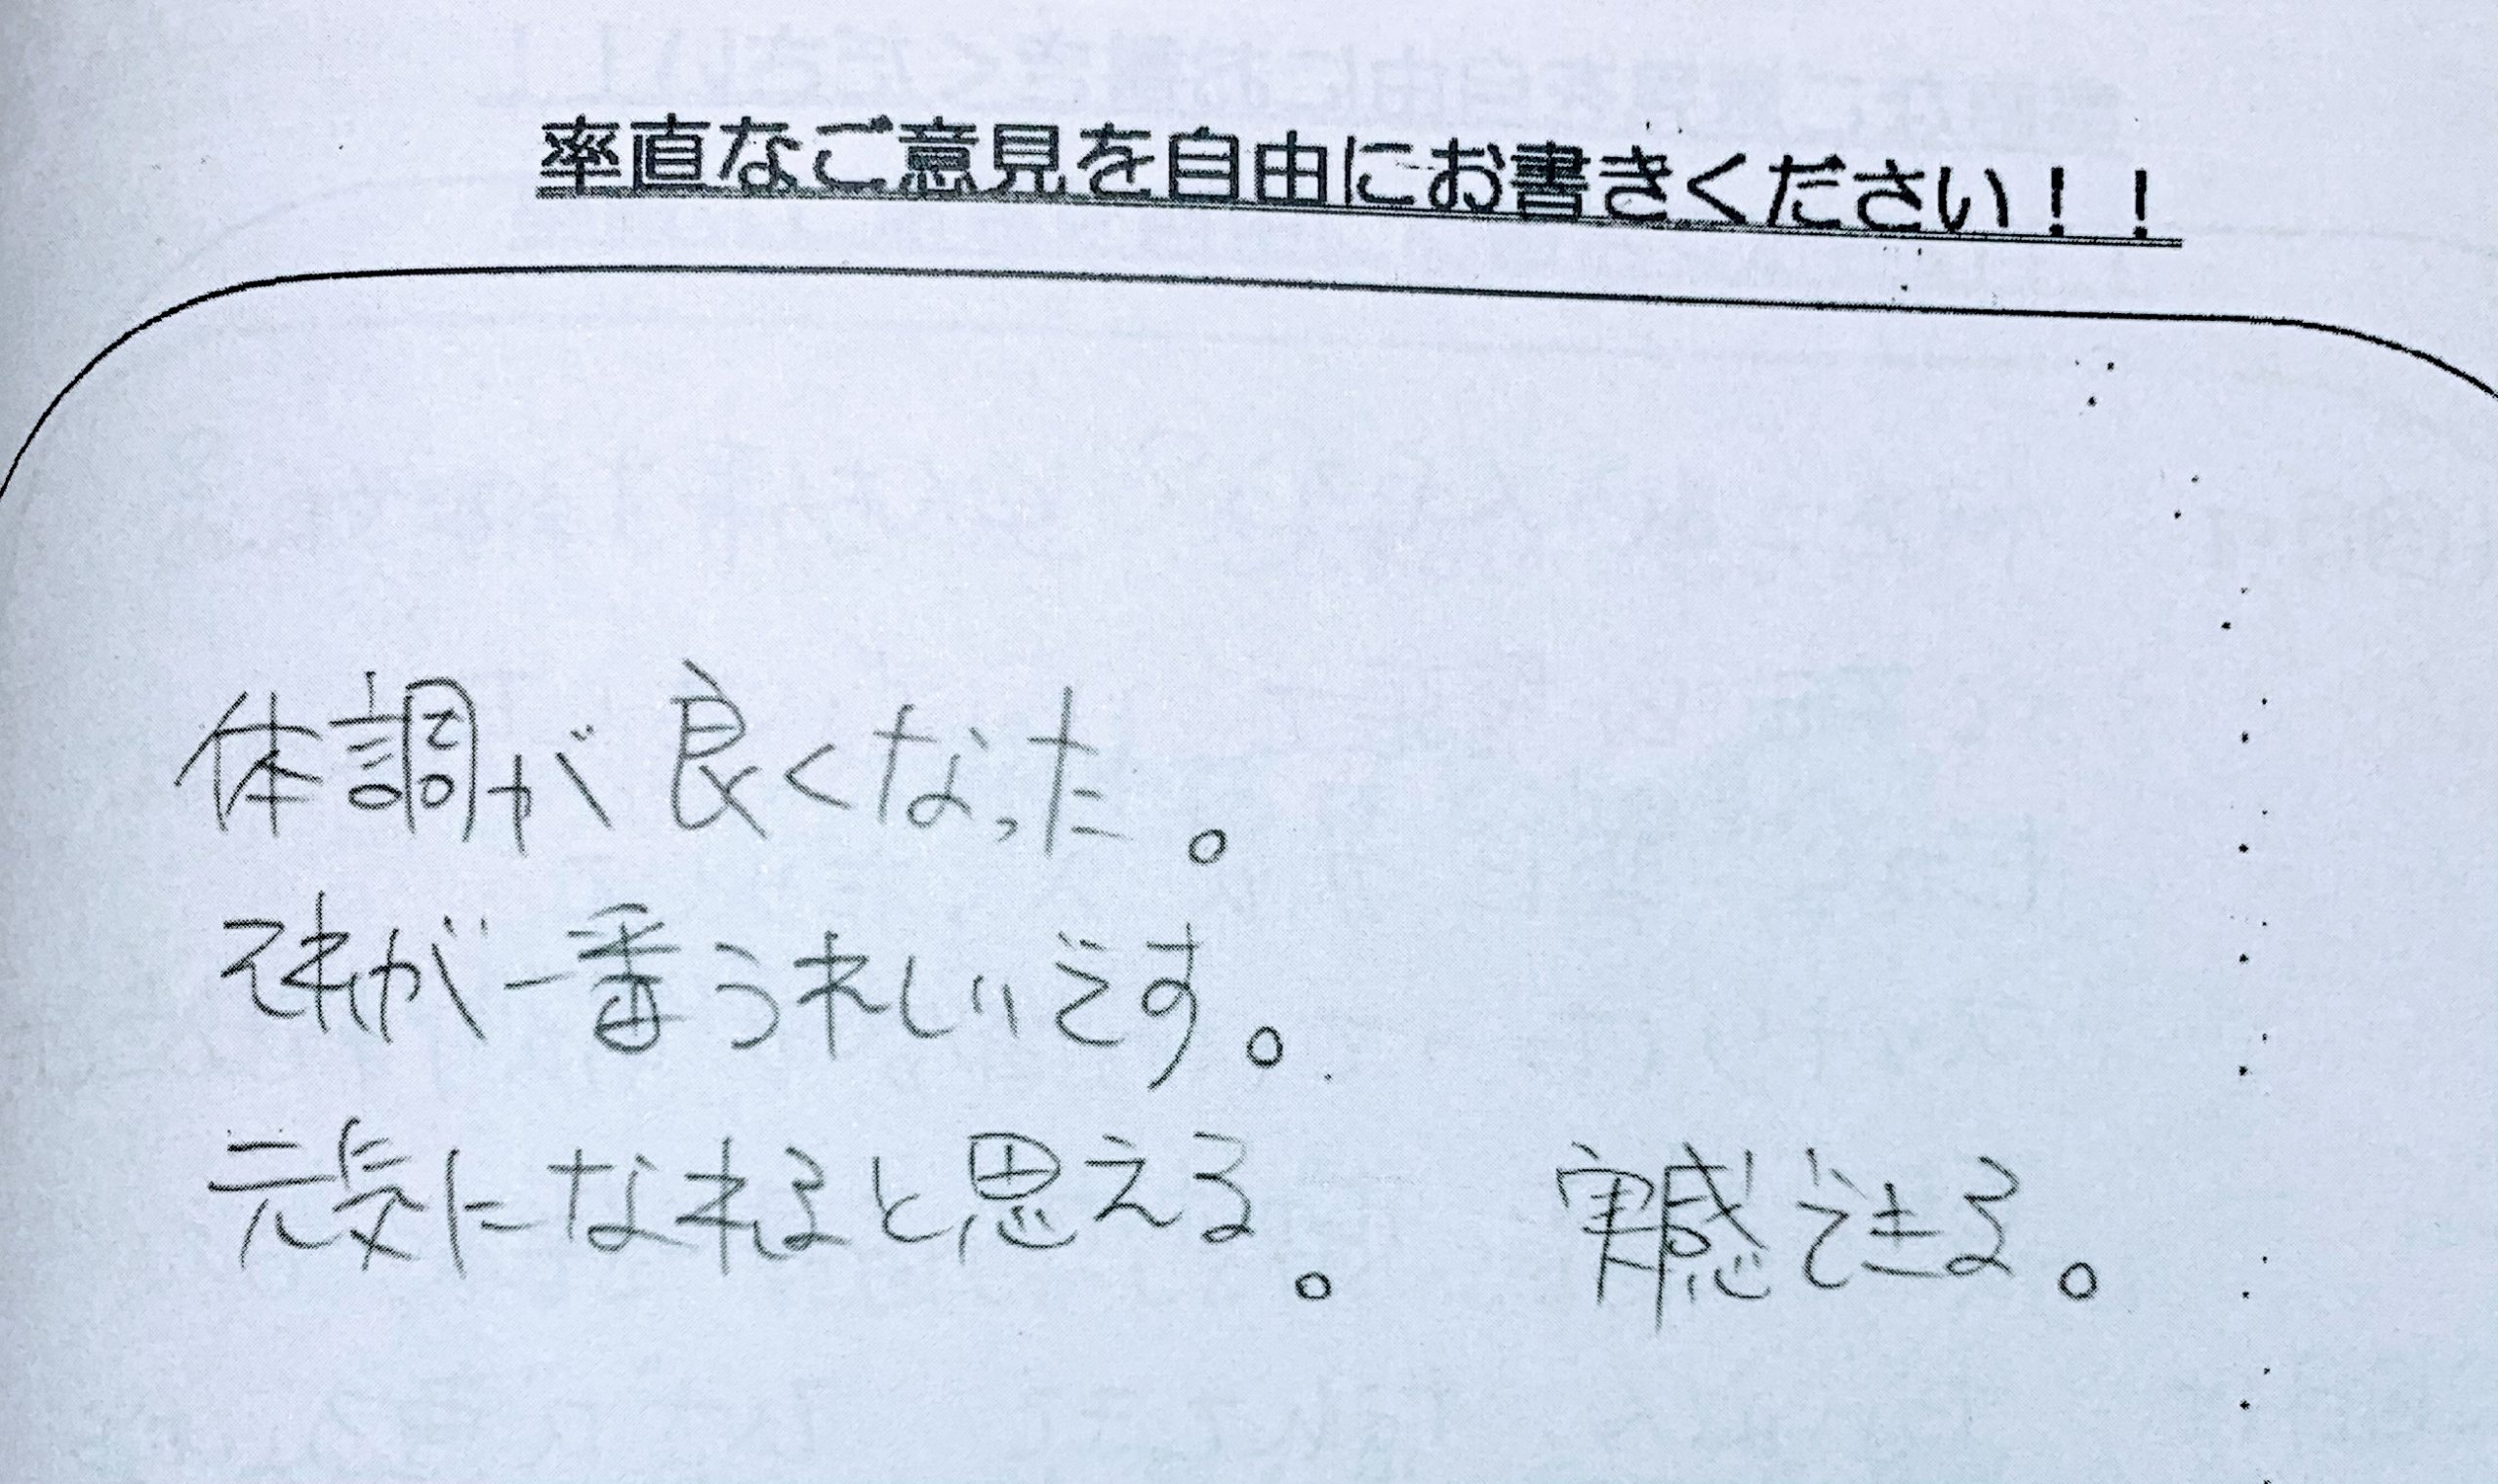 率直なご意見を自由にお書きください！！
体調が良くなった。
それが一番うれしいです。
元気になれると思える。 実感できる。